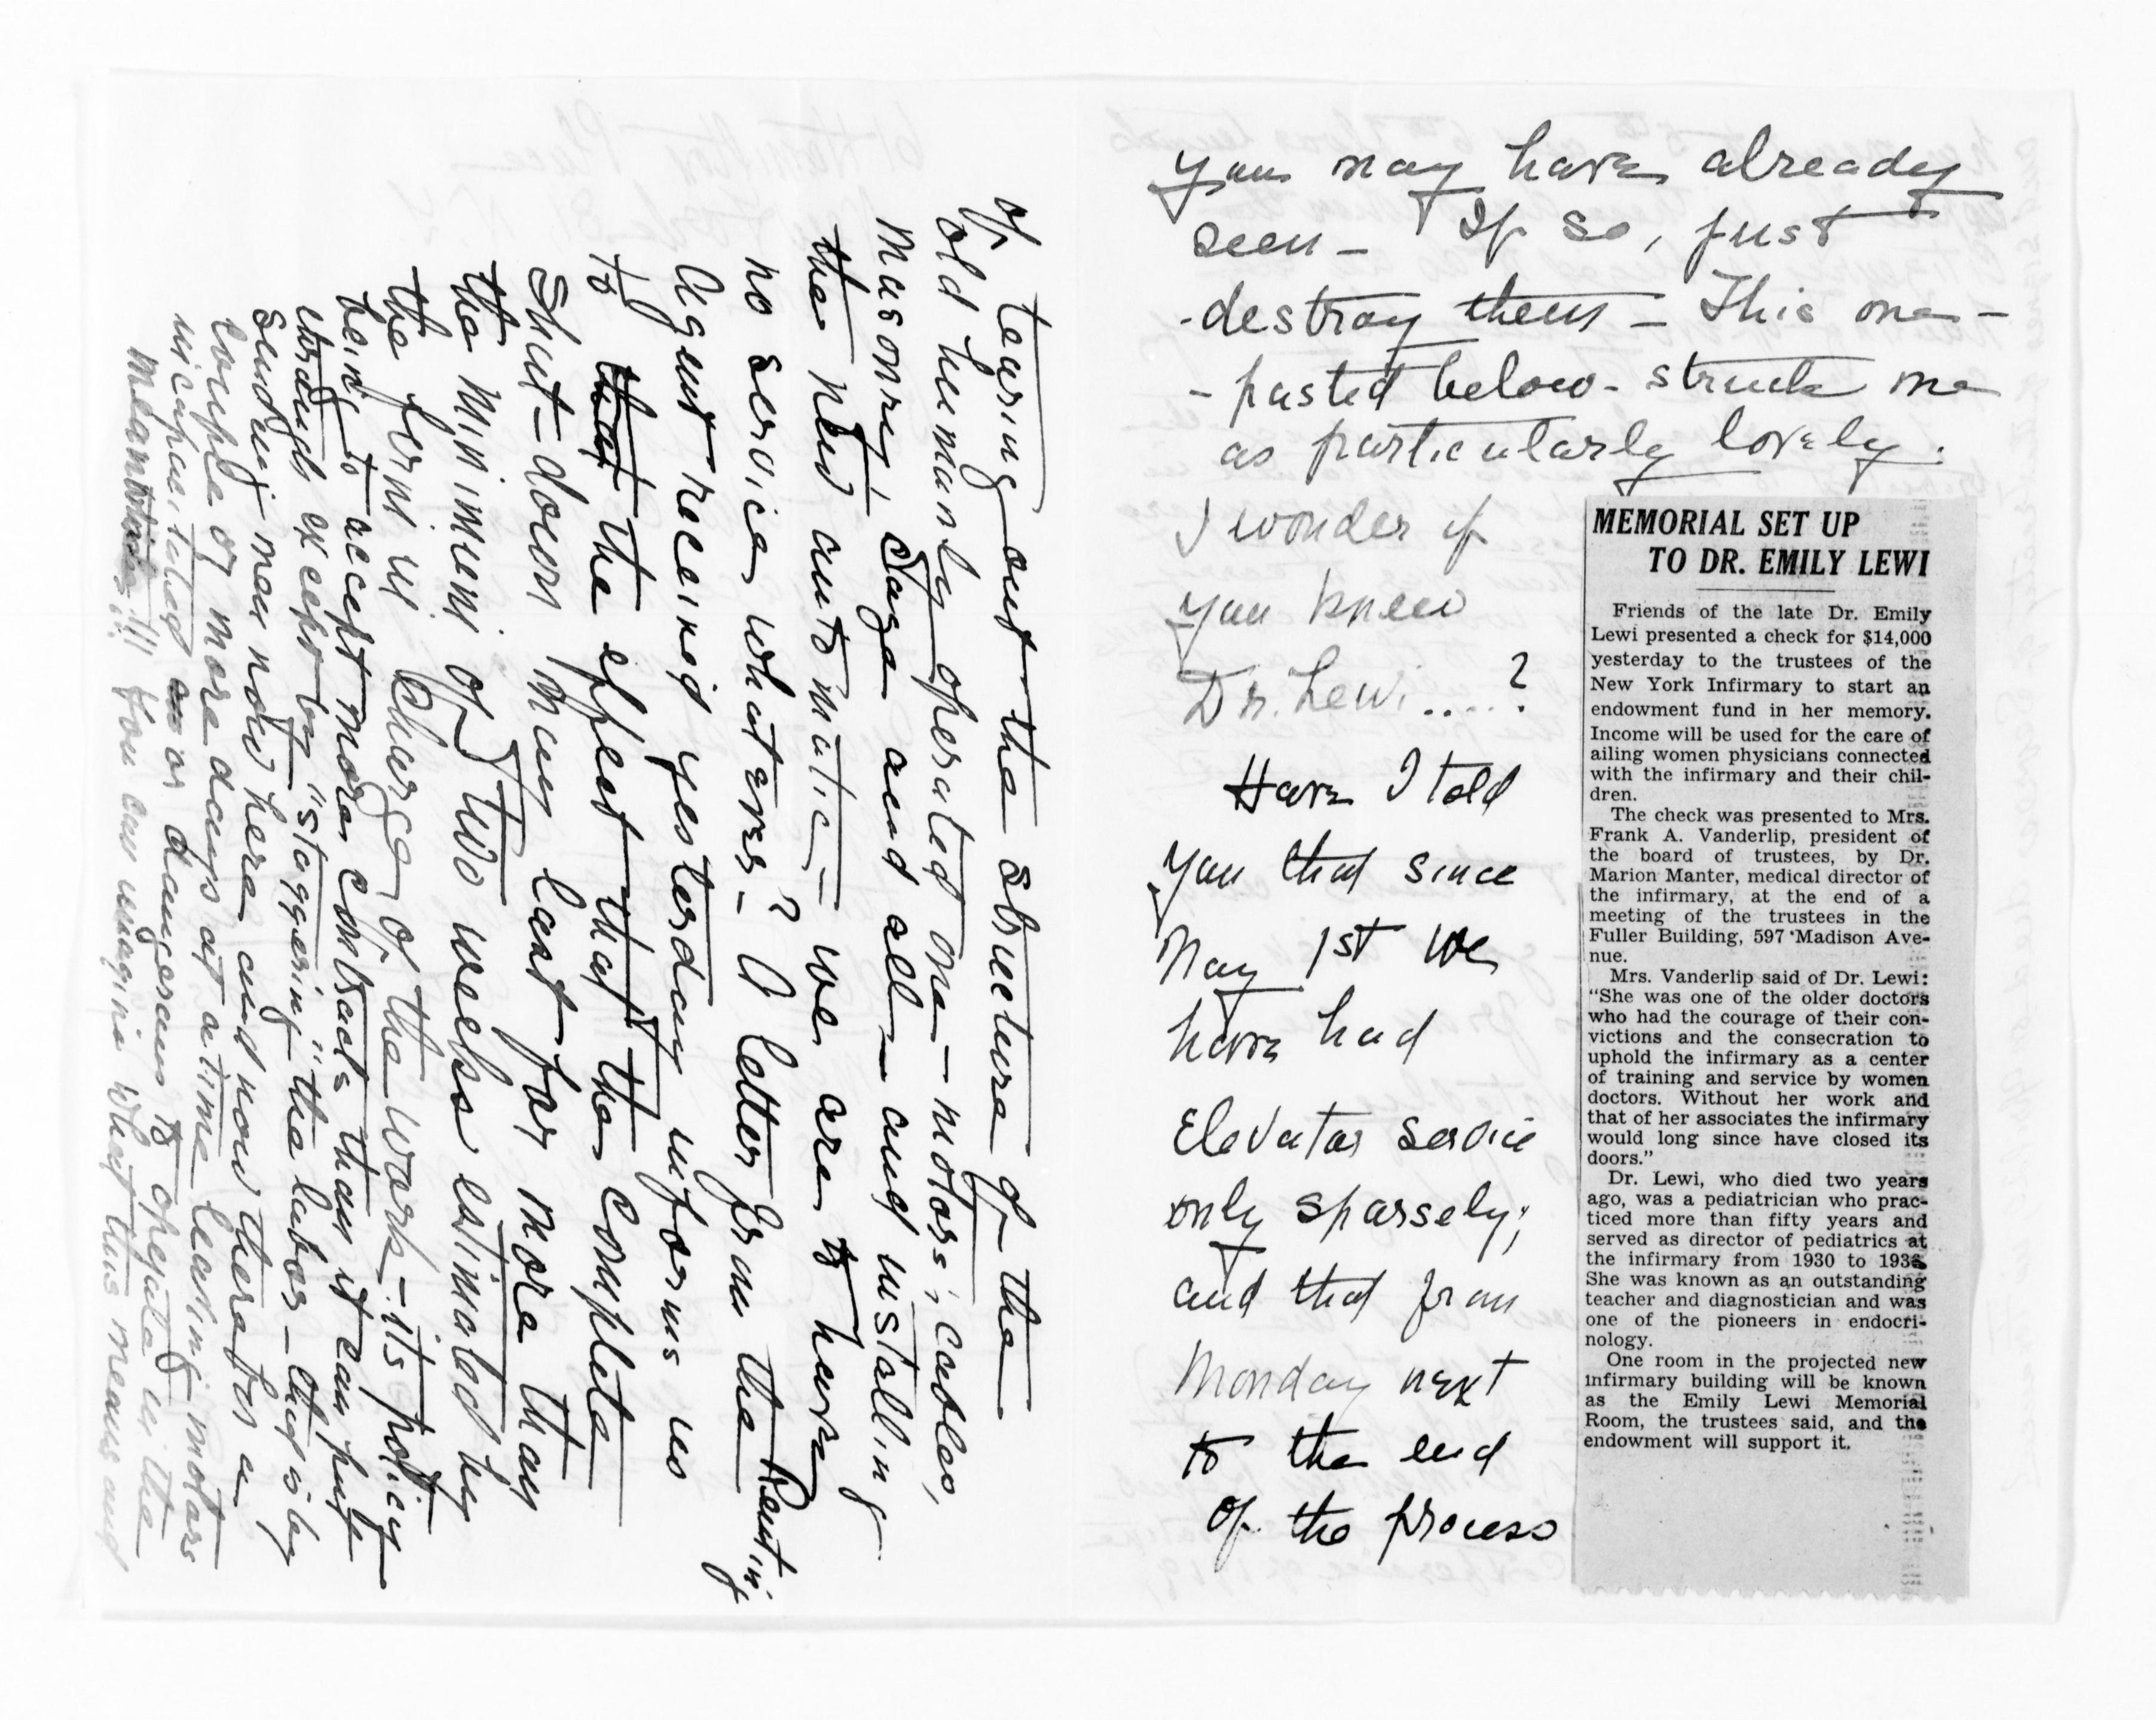 you may have already
seen – If so, just
- destroy them – This one –
- pasted below – struck me
as particularly lovely.
I wonder if
you knew
Dr. Lewi.....?
Have I told
you that since
May 1st we
have had
Elevator service
only sparsely;
and that from
Monday next
to the end
of the process
MEMORIAL SET UP
TO DR. EMILY LEWI
Friends of the late Dr. Emily
Lewi presented a check for $14,000
yesterday to the trustees of the
New York Infirmary to start an
endowment fund in her memory.
Income will be used for the care of
ailing women physicians connected
with the infirmary and their chil-
dren.
The check was presented to Mrs.
Frank A. Vanderlip, president of
the board of trustees, by Dr.
Marion Manter, medical director of
the infirmary, at the end of a
meeting of the trustees in the
Fuller Building, 597 Madison Ave-
nue.
Mrs. Vanderlip said of Dr. Lewi:
“She was one of the older doctors
who had the courage of their con-
victions and the consecration to
uphold the infirmary as a center
of training and service by women
doctors. Without her work and
that of her associates the infirmary
would long since have closed its
doors.”
Dr. Lewi, who died two years
ago, was a pediatrician who prac-
ticed more than fifty years and
served as director of pediatrics at
the infirmary from 1930 to
She was known as an outstanding
teacher and diagnostician and was
one of the pioneers in endocri-
nology.
One room in the projected new
infirmary building will be known
as the Emily Lewi Memorial
Room, the trustees said, and the
endowment will support it.
of tearing out the structure of the
old humanly operated one – motors, cables,
masonry, cage and all – and installing
the new automatic – we are to have
no service whatever – ? A letter from the Renting
Agent received yesterday informs us
to that the effect that the complete
Shut-down may last for more than
the minimum of two weeks estimated by
the firm in charge of the work – its policy
being to accept more contracts than it can put
through except by "staggering" the labor – that is by
sending men now here and now there for a
couple or more days at a time leaving motors
incapacitated or dangerous to operate in the
meantime!!! You can imagine what this means and